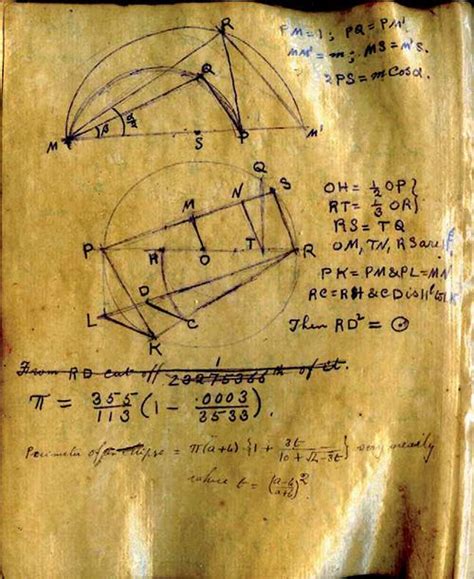 PM=1; PQ=PM'
MM'=m; MS=M'S.
2PS=mCosα.
R
Q
β
α/2
M
S
P
M'
Q
S
N
M
P
H
O
T
R
D
L
C
K
OH = 1/2 OP}
RT = 1/3 OR}
RS = TQ
OM, TN, RS are
PK=PM & PL=MN
RC=RH & CD is ||l to LK
Then RD² = ⊙
From RD cut off 1/ th of it.
π = 355/113 (1 - .0003/3533).
Perimeter of an ellipse = π(a+b) {1 + 3t/(10+√4-3t)} very nearly
where t = (a-b/a+b)²